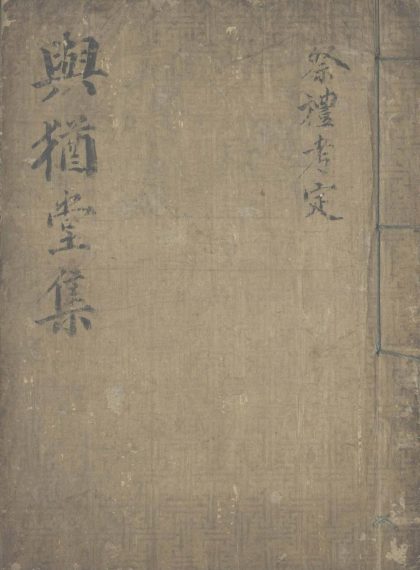 祭禮考定
與猶堂集